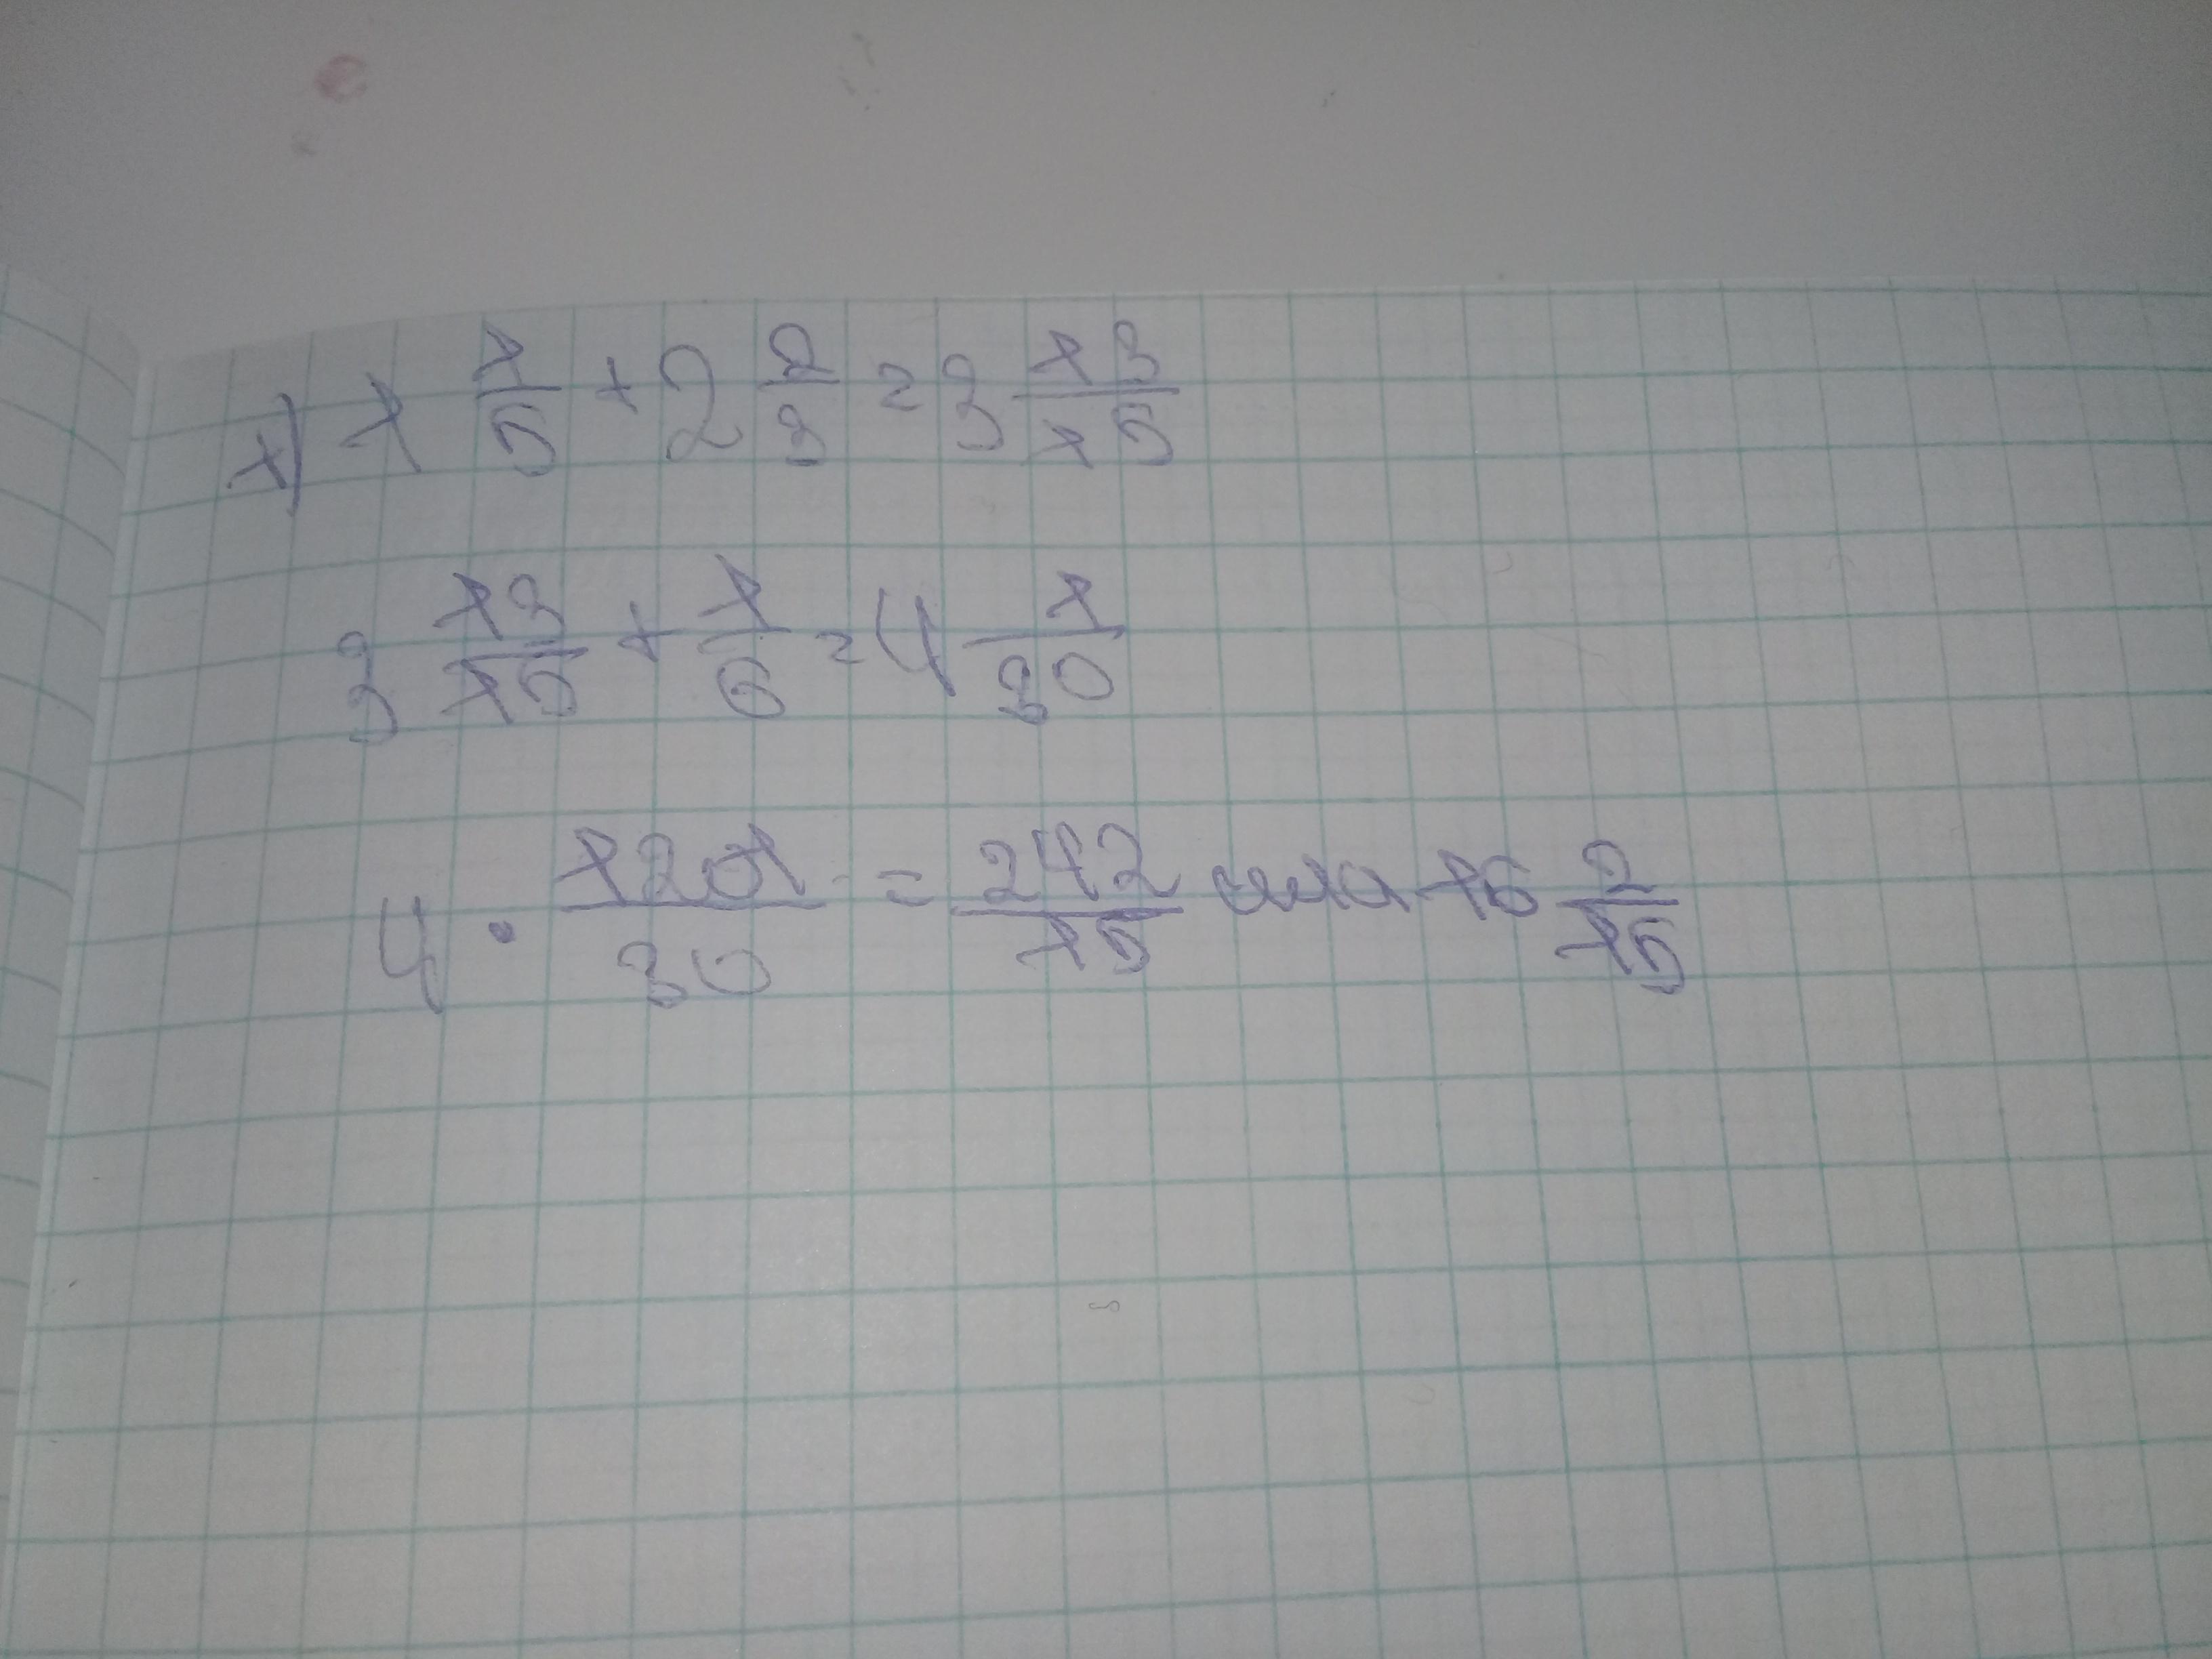 1) 1 1/5 + 2 2/3 = 3 13/15
3 13/15 + 1/6 = 4 1/30
4 · 121/30 = 242/15 или 16 2/15